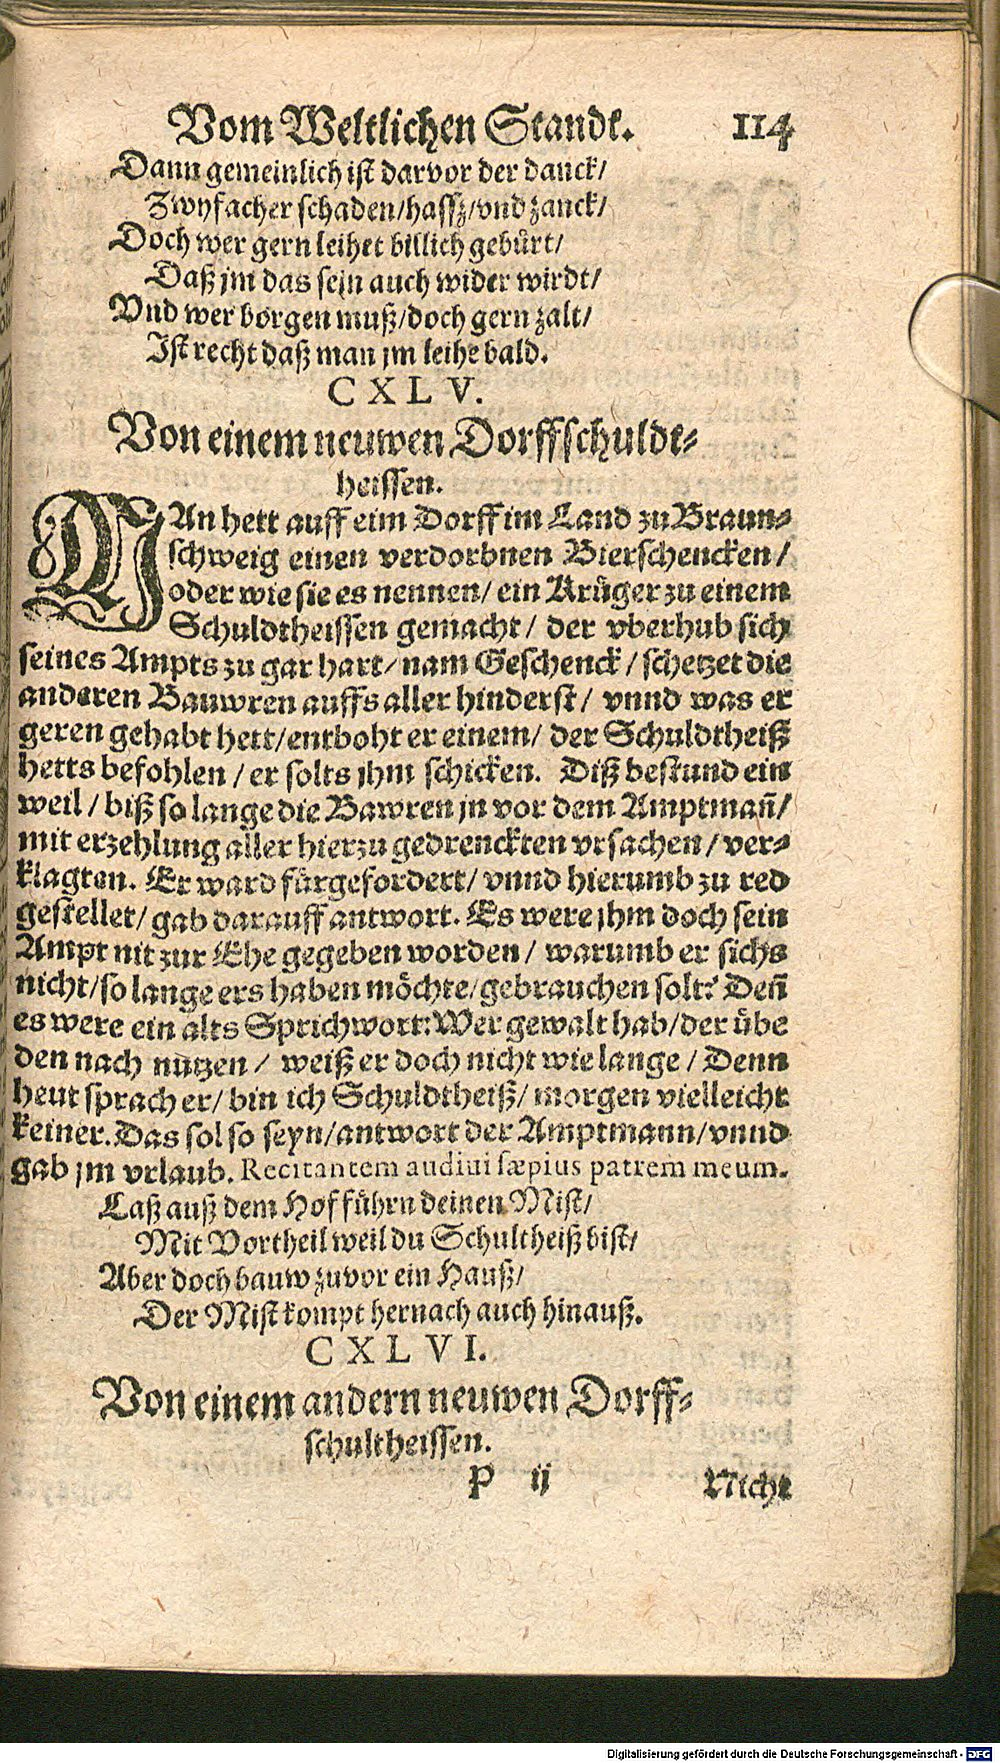 Vom Weltlichen Standt. 114
Dann gemeinlich ist darvor der danck/
Zwyfacher schaden/hassz/vnd zanck/
Doch wer gern leihet billich gebürt/
Daß jm das sein auch wider wirdt/
Vnd wer borgen muß/doch gern zalt/
Ist recht daß man jm leihe bald.
CXLV.
Von einem neuwen Dorffschuldt-
heissen.
MAn hett auff eim Dorff im Land zu Braun-
schweig einen verdorbnen Bierschencken/
oder wie sie es nennen/ ein Krüger zu einem
Schuldtheissen gemacht/ der vberhub sich
seines Ampts zu gar hart/ nam Geschenck/ schetzet die
anderen Bauwren auffs aller hinderst/ vnnd was er
geren gehabt hett/entboht er einem/ der Schuldtheiß
hetts befohlen/ er solts jhm schicken. Diß bestund ein
weil/ biß so lange die Bawren jn vor dem Amptmañ/
mit erzehlung aller hierzu gedrenckten vrsachen/ ver-
klagten. Er ward fürgefordert/ vnnd hierumb zu red
gestellet/ gab darauff antwort. Es were jhm doch sein
Ampt nit zur Ehe gegeben worden/ warumb er sichs
nicht/so lange ers haben möchte/gebrauchen solt? Deñ
es were ein alts Sprichwort: Wer gewalt hab/der übe
den nach nutzen/ weiß er doch nicht wie lange/ Denn
heut sprach er/ bin ich Schuldtheiß/ morgen vielleicht
keiner. Das sol so seyn/antwort der Amptmann/vnnd
gab jm vrlaub. Recitantem audiui sæpius patrem meum.
Laß auß dem Hof führn deinen Mist/
Mit Vortheil weil du Schultheiß bist/
Aber doch bauw zuvor ein Hauß/
Der Mist kompt hernach auch hinauß.
CXLVI.
Von einem andern neuwen Dorff-
schultheissen.
P ij Nicht
Digitalisierung gefördert durch die Deutsche Forschungsgemeinschaft - DFG